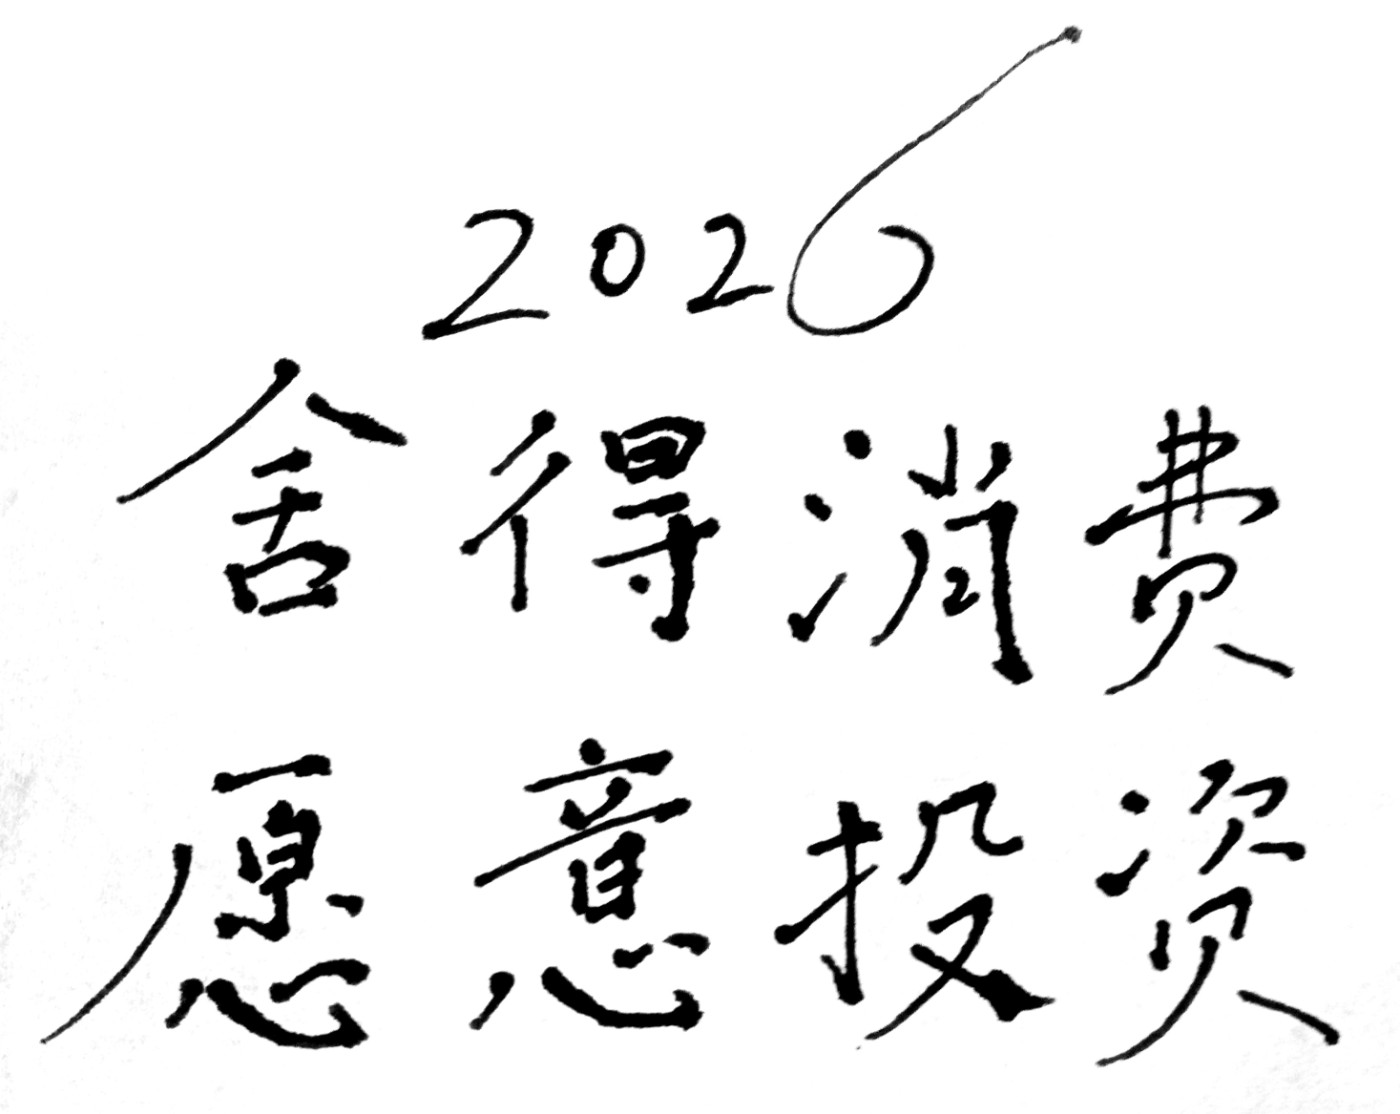 2026
舍得消费
愿意投资